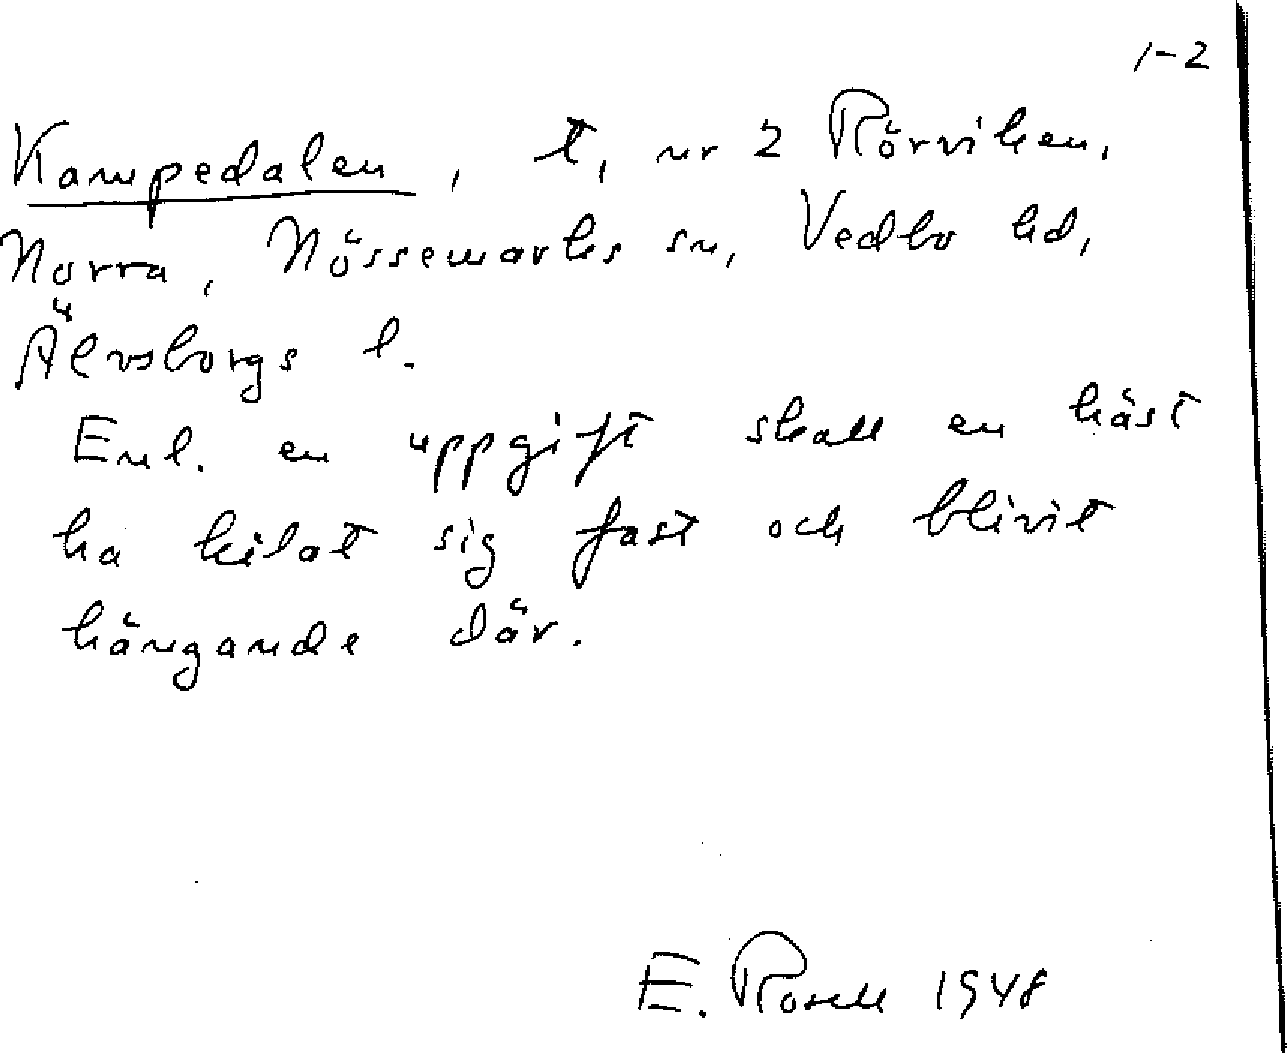 1-2
Kampedalen, t, nr 2 Rörviken,
Norra, Nössemarks sn, Vedbo hd,
Älvsborgs l.
Enl. en uppgift skall en häst
ha kilat sig fast och blivit
hängande där.
E. Rosell 1948